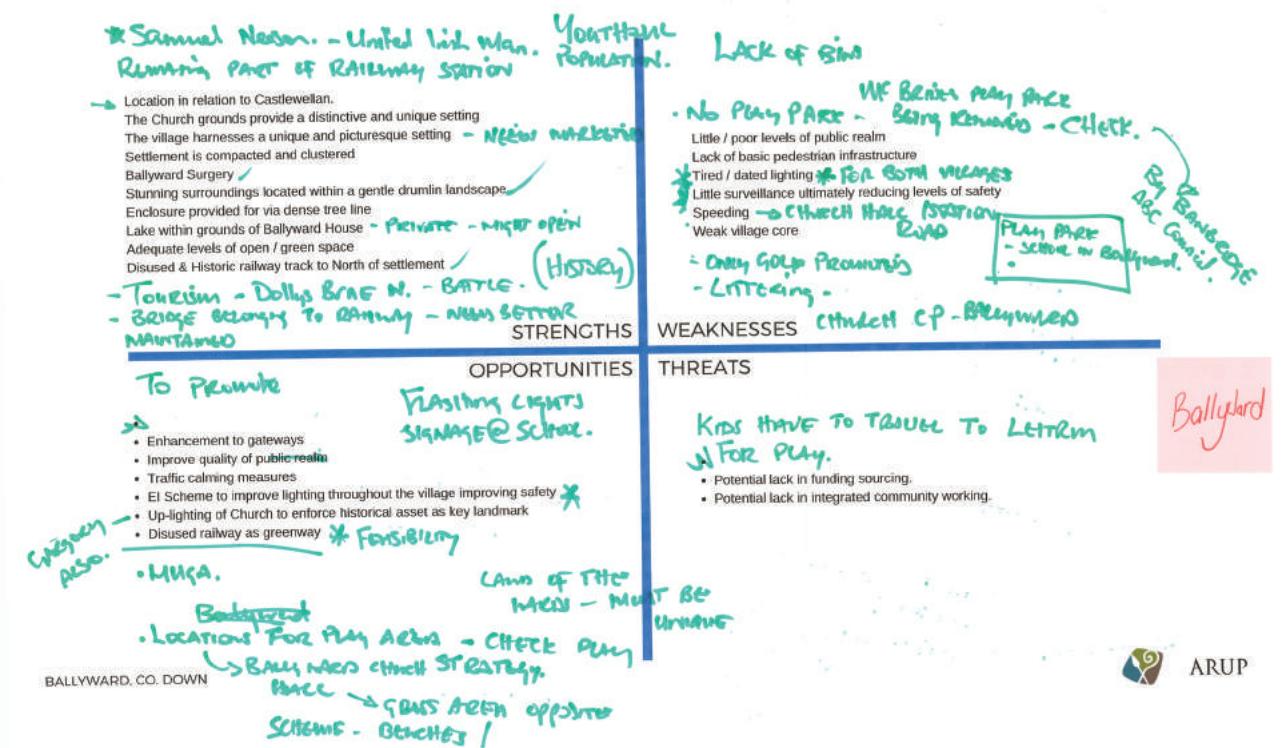 * Samuel Neeson. - United Irish Man.
Remaining PART OF RAILWAY STATION
YOUTHFUL
POPULATION.
→ Location in relation to Castlewellan.
The Church grounds provide a distinctive and unique setting
The village harnesses a unique and picturesque setting - NEEDS MARKETING
Settlement is compacted and clustered
Ballyward Surgery ✓
Stunning surroundings located within a gentle drumlin landscape ✓
Enclosure provided for via dense tree line
Lake within grounds of Ballyward House - PRIVATE - MIGHT OPEN
Adequate levels of open / green space
Disused & Historic railway track to North of settlement ✓ (HISTORY)
- TOURISM - Dollys BRAE N. - BATTLE.
- BRIDGE BELONGING TO RAILWAY - NEEDS BETTER
MAINTAINED
STRENGTHS
LACK OF BINS
PLAY PARK
• NO PLAY PARK - BEING REMOVED - CHECK.
By BANBRIDGE
ABC Council.
Little / poor levels of public realm
Lack of basic pedestrian infrastructure
* Tired / dated lighting * FOR BOTH VILLAGES
* Little surveillance ultimately reducing levels of safety
Speeding → CHURCH HALL / STATION
ROAD
Weak village core
PLAY PARK
- SCHOOL IN Ballyward.
- ONLY GOLD PROMOTED
- LITTERING -
CHURCH CP - BALLYWARD
WEAKNESSES
OPPORTUNITIES
To PROMOTE
FLASHING LIGHTS
SIGNAGE @ SCHOOL.
• Enhancement to gateways
• Improve quality of public realm
• Traffic calming measures
• EI Scheme to improve lighting throughout the village improving safety *
• Up-lighting of Church to enforce historical asset as key landmark
• Disused railway as greenway * FEASIBILITY
ALSO.
• MUGA.
LAND OF THE
- MUST BE
UNIQUE
• LOCATIONS FOR PLAY AREA - CHECK PLAY
STRATEGY.
↳ BALLYWARD CHURCH
HALL
→ GRASS AREA OPPOSITE
SCHEME - BENCHES /
THREATS
KIDS HAVE TO TRAVEL TO LEITRIM
FOR PLAY.
• Potential lack in funding sourcing.
• Potential lack in integrated community working.
Ballyward
BALLYWARD, CO. DOWN
ARUP